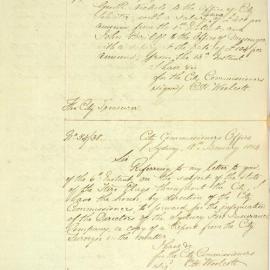 to the Office of City
with a Salary of
annum from the
John
annum, from the 15th Instant
I have &c
for the City Commissioners
(signed) C. H. Woolcott
The City Treasurer
No 34/38. City Commissioners Office
Sydney, 18th January 1854
Sir
Referring to my letter to you
of the 6th Instant, on the subject of the state
of the Fire Plugs throughout the City, I
have the honor, by direction of the City
Commissioners to forward for the information
of the Directors of the Sydney Fire Insurance
Company, a copy of a Report from the City
Surveyor on the matter.
I have &c
for the City Commissioners
C. H. Woolcott